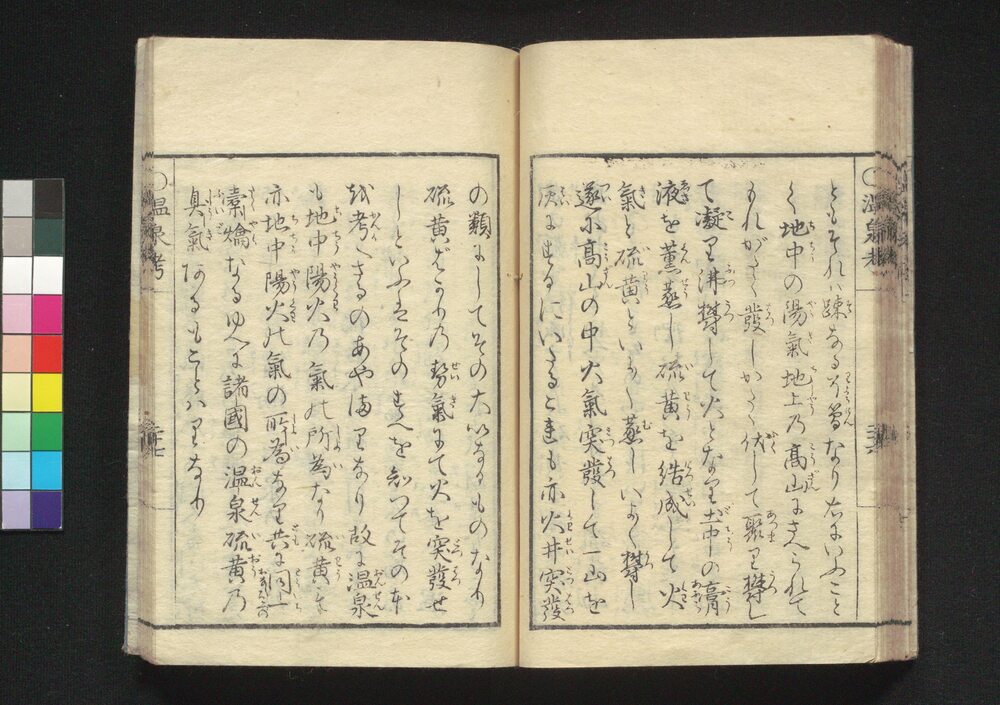 ともそれハ疎なる了簡なり右にいふこと
く地中の陽氣地上乃高山にさへられて
もれがたく發しかたく伏して聚里欝し
て凝里沸欝して火となり土中の膏
液を薫蒸し硫黄を結成して火
氣と硫黄といよ〱蒸しいよ〱欝し
遂に高山の中火氣突發して一山を
灰にするにいたるこれも亦火井突發
の類にしてその大いなるものなり
硫黄ばかり乃勢氣にて火を突發せ
しといふはその末を知つてその本
を考へさるのあやまりなり故に温泉
も地中陽火乃氣の所為なり硫黄も
亦地中陽火の氣の所為なり共に同一
橐爚なるゆへに諸國の温泉硫黄乃
臭氣あるもことハりなり
〇温泉考